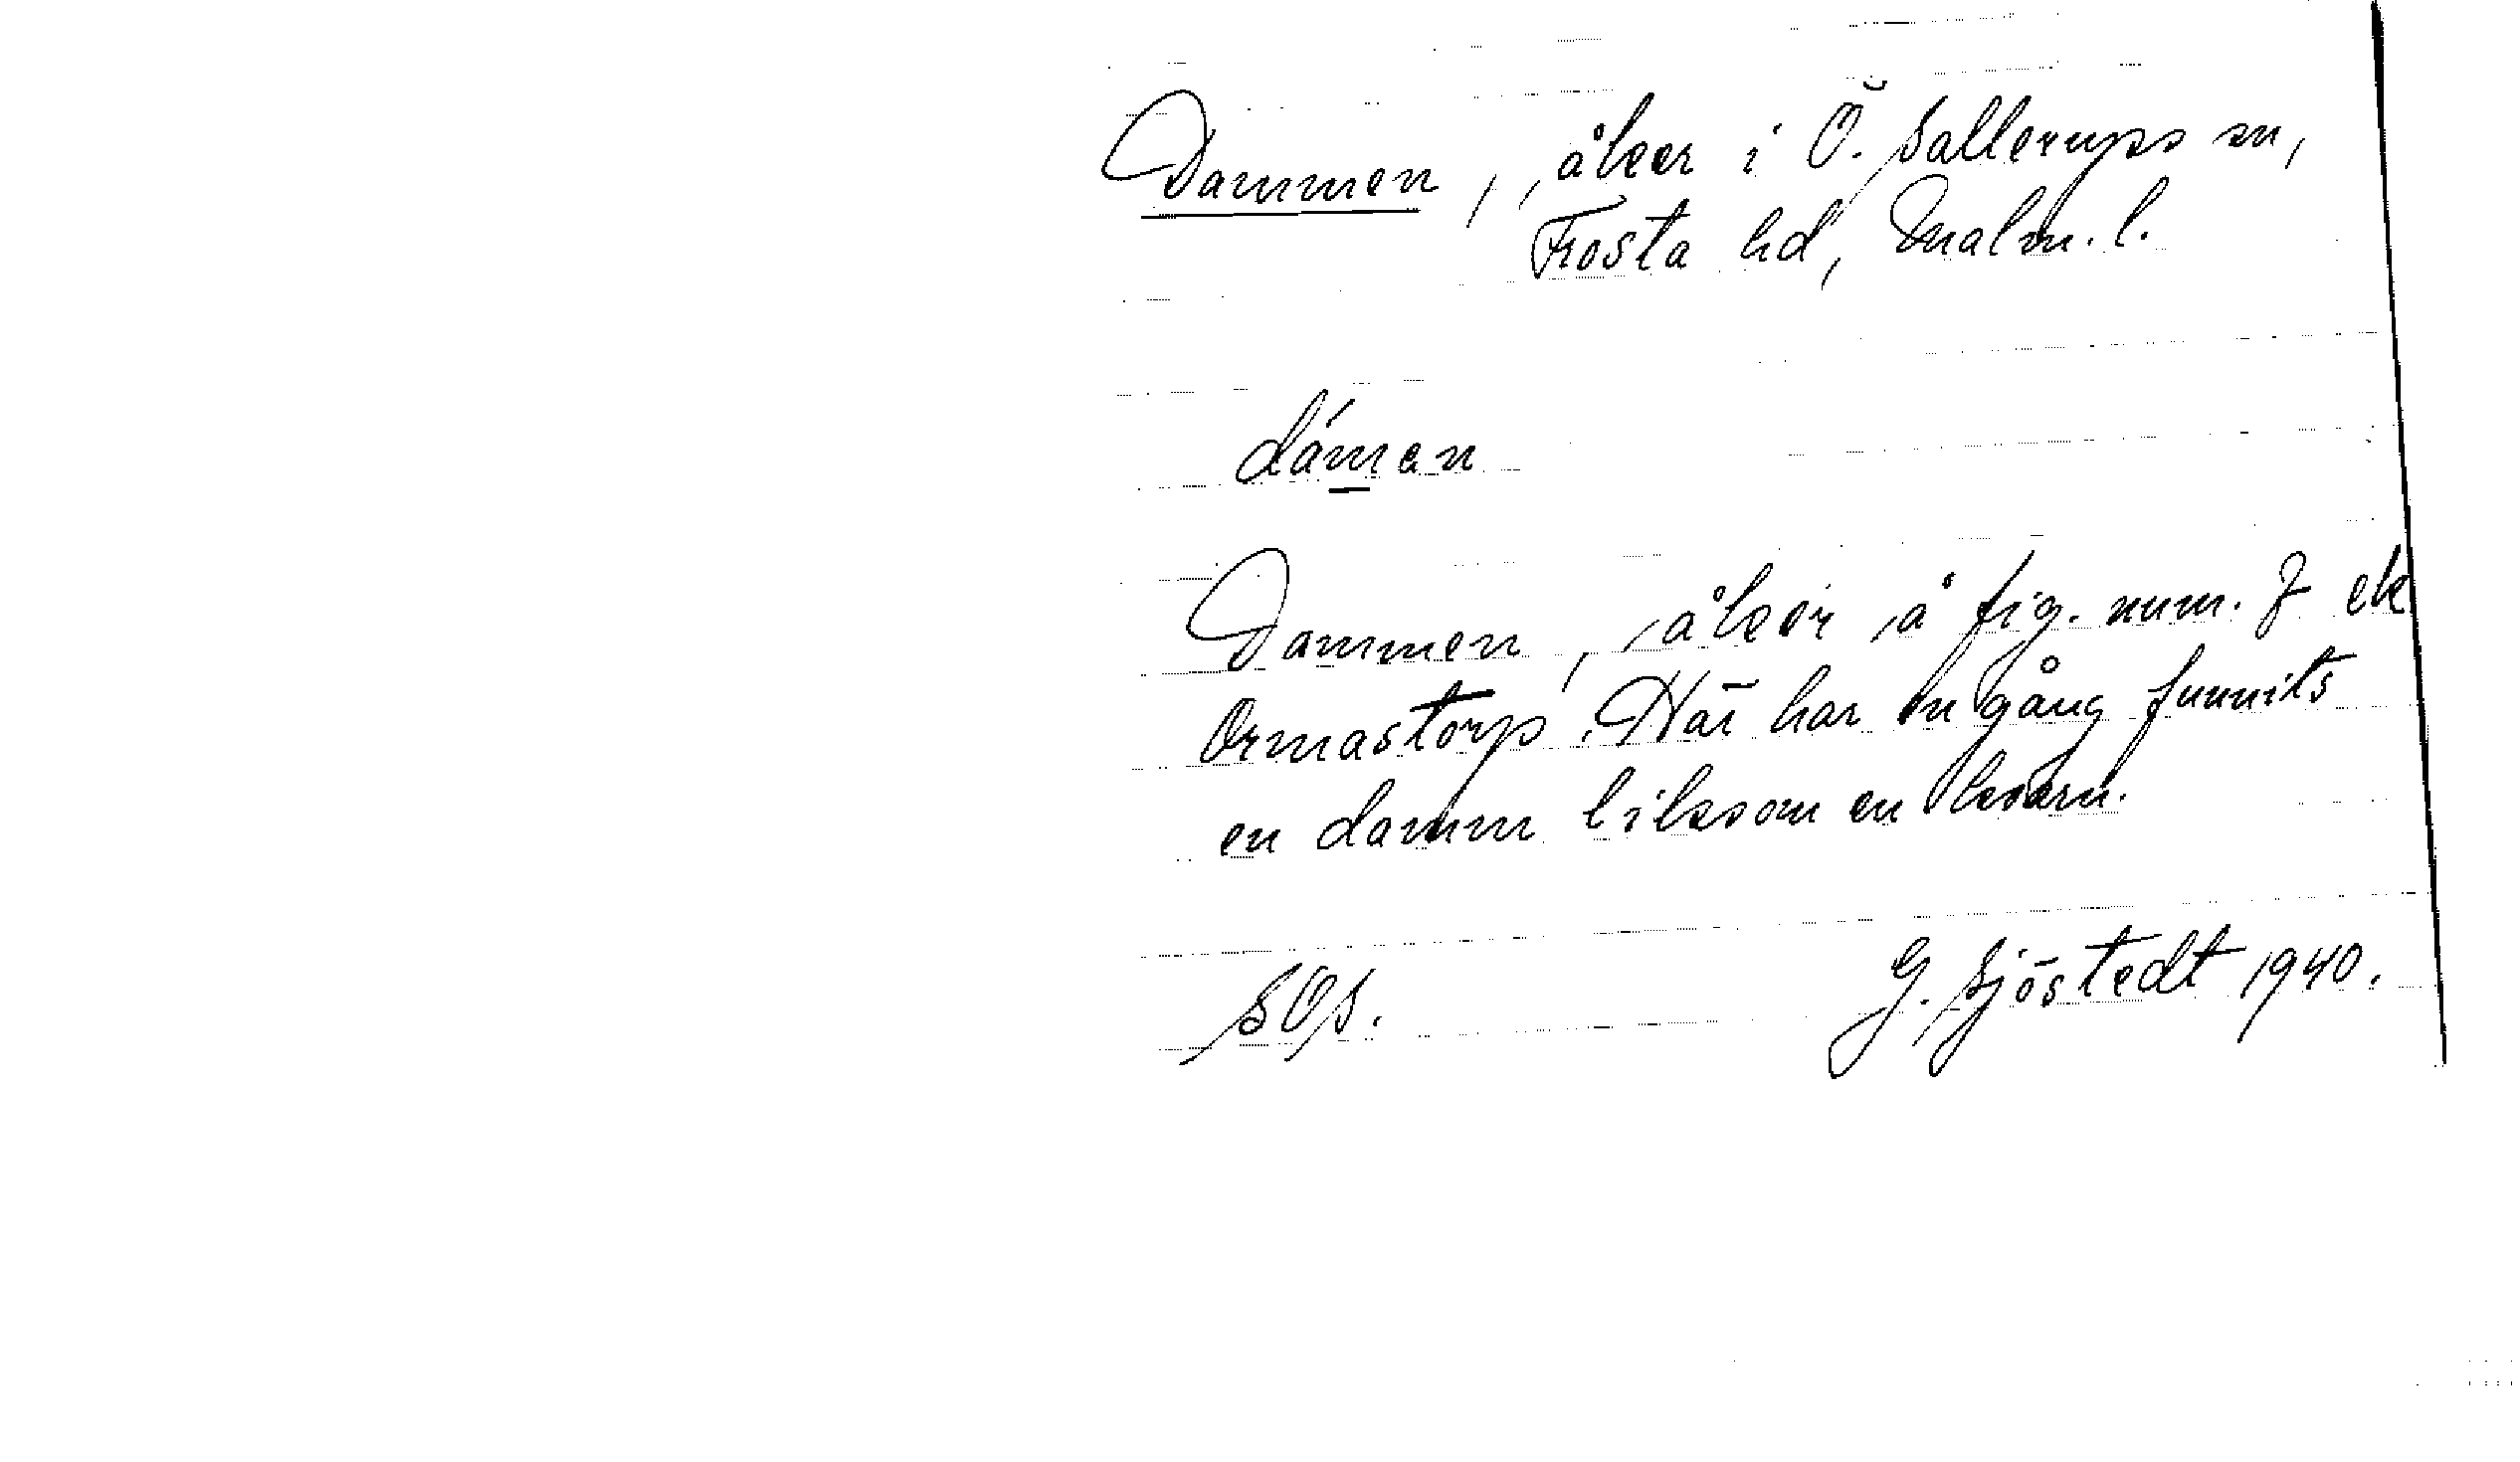 Dammen, åker i Ö. Sallerups sn,
Frosta hd, Malm. l.
dámen
Dammen, åker å fig. num. 7 ek
Ormastorp. Här har en gång funnits
en damm liksom en kvarn.
SOS. G. Sjöstedt 1940.